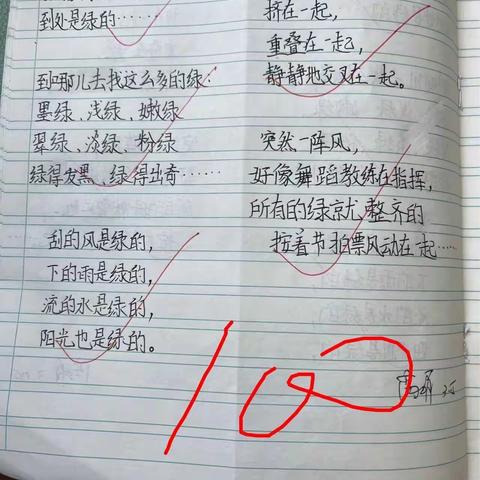 到处是绿的……
到哪儿去找这么多的绿:
墨绿、浅绿、嫩绿
翠绿、淡绿、粉绿
绿得发黑、绿得出奇……
刮的风是绿的,
下的雨是绿的,
流的水是绿的,
阳光也是绿的。
挤在一起,
重叠在一起,
静静地交叉在一起。
突然一阵风,
好像舞蹈教练在指挥,
所有的绿就整齐的
按着节拍飘动在一起……
100